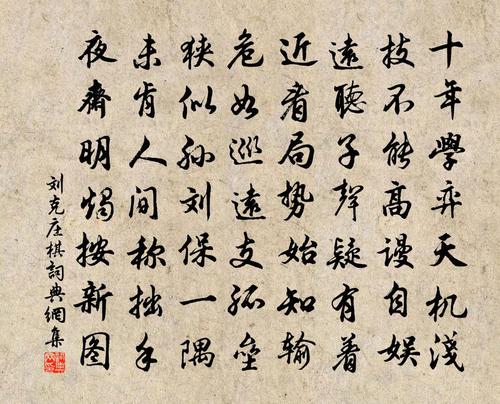 十年學弈天机淺
技不能高謾自娱
遠聽子聲疑有着
近看局势始知輸
危如巡遠支孤壘
狭似孙刘保一隅
未肯人间称拙手
夜齋明燭按新图
刘克庄棋詞典網集